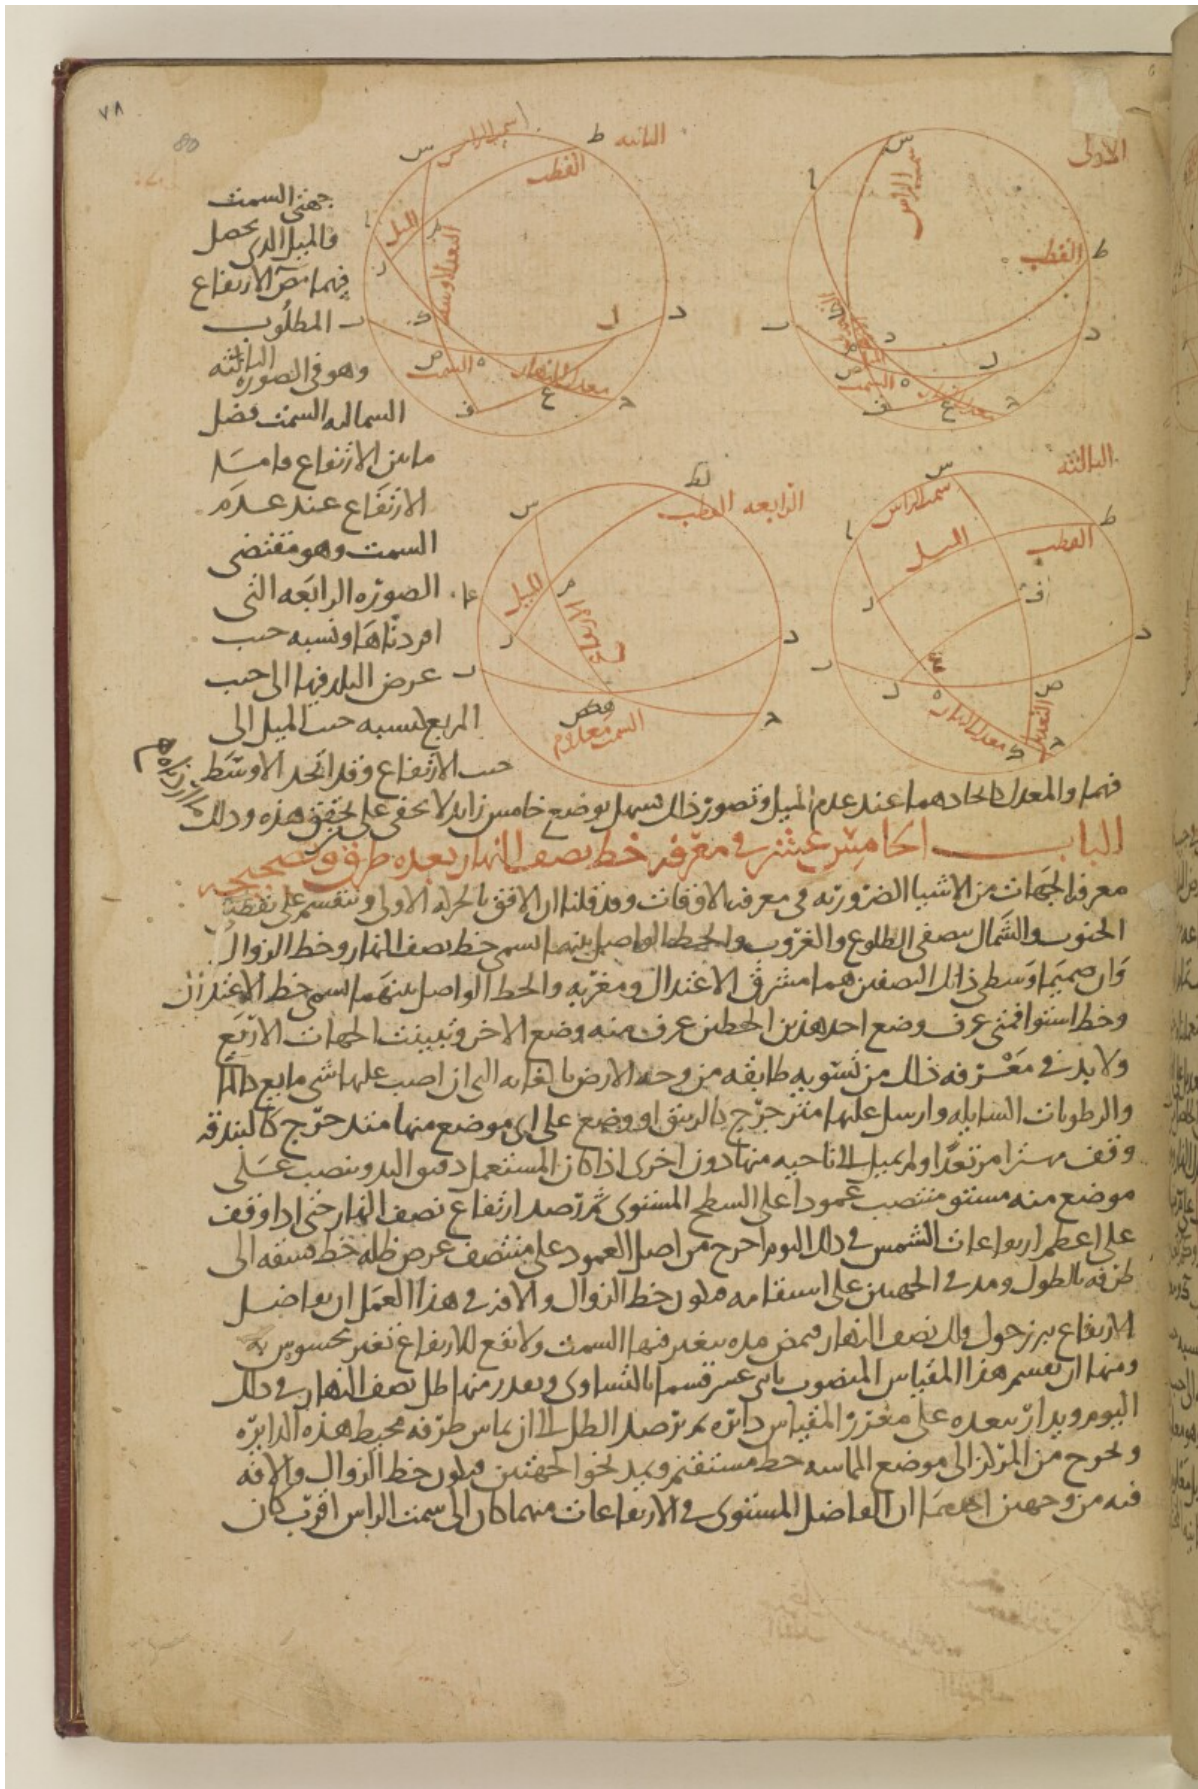 ٧٨
80
الاولى
سمت الراس
القطب
معدل النهار
السمت
الثانيه
سمت الراس
القطب
الميل
البعد الاوسط
السمت
معدل النهار
الثالثه
سمت الراس
القطب
الميل
التعديل
معدل النهار
الرابعه
القطب
الميل
السمت معدوم
جهتى السمت
والميل الذى يحصل
فيهما من الارتفاع
المطلوب
وهو فى الصورة الثالثه
الشماليه السمت فضل
ما بين الارتفاع وما
الارتفاع عند عدم
السمت وهو مقتضى
الصورة الرابعه التى
افردناها ونسبه جيب
عرض البلد فيها الى جيب
الربع كنسبه جيب الميل الى
جيب الارتفاع وقد اتحد الاوسط
فيهما والمعدل لاتحادهما عند عدم الميل وتصور ذلك سهل بوضع خامس زايد لا يخفى على من تحقق هذه وذلك
الباب الخامس عشر فى معرفه خط نصف النهار بعده طرق صحيحه
معرفه الجهات من الاشيا الضروريه فى معرفه الاوقات وقد قلنا ان الافق بالحركه الاولى وينقسم على نقطتى
الجنوب والشمال بنصفى الطلوع والغروب والخط الواصل بينهما يسمى خط نصف النهار وخط الزوال
وان صميمى وسطى ذانك النصفين هما مشرق الاعتدال ومغربه والخط الواصل بينهما يسمى خط الاعتدال
وخط استوا فمتى عرف وضع احد هذين الخطين عرف منه وضع الاخر وتبينت الجهات الاربع
ولا بد فى معرفه ذلك من تسويه طايفه من وجه الارض بالغايه التى ان اصب عليها شى مايع كالما
والرطوبات السايله وارسل عليها متدحرج كالزيبق او وضع على اى موضع منها متدحرج كالبندقه
وقف مهتزا مرتعدا ولم يميل الى ناحيه منها دون اخرى اذا كان المستعمل دقيق اليد وينصب على
موضع منه مستو منتصب عمودا على السطح المستوى ثم ترصد ارتفاع نصف النهار حتى اذا وقف
على اعظم ارتفاعات الشمس فى ذلك اليوم اخرج من اصل العمود على منتصف عرض ظله خط يشقه الى
طرفه بالطول ومد فى الجهتين على استقامه فيكون خط الزوال والافه فى هذا العمل ان تفاضل
الارتفاع ينزر حول فلك نصف النهار فيمضى مده يتغير فيها السمت ولا يقع للارتفاع تغير محسوس به
ومنها ان يقسم هذا المقياس المنصوب باثنى عشر قسما بالتساوى ويقدر منها ظل نصف النهار فى ذلك
اليوم ويدار ببعده على مغرز المقياس دائره ثم ترصد الظل الى ان يماس طرفه محيط هذه الدايره
ويخرج من المركز الى موضع المماسه خط مستقيم ويمد نحو الجهتين فيكون خط الزوال والافه
فيه من وجهين احدهما ان التفاضل المستوى فى الارتفاعات مهما كان الى سمت الراس اقرب كان